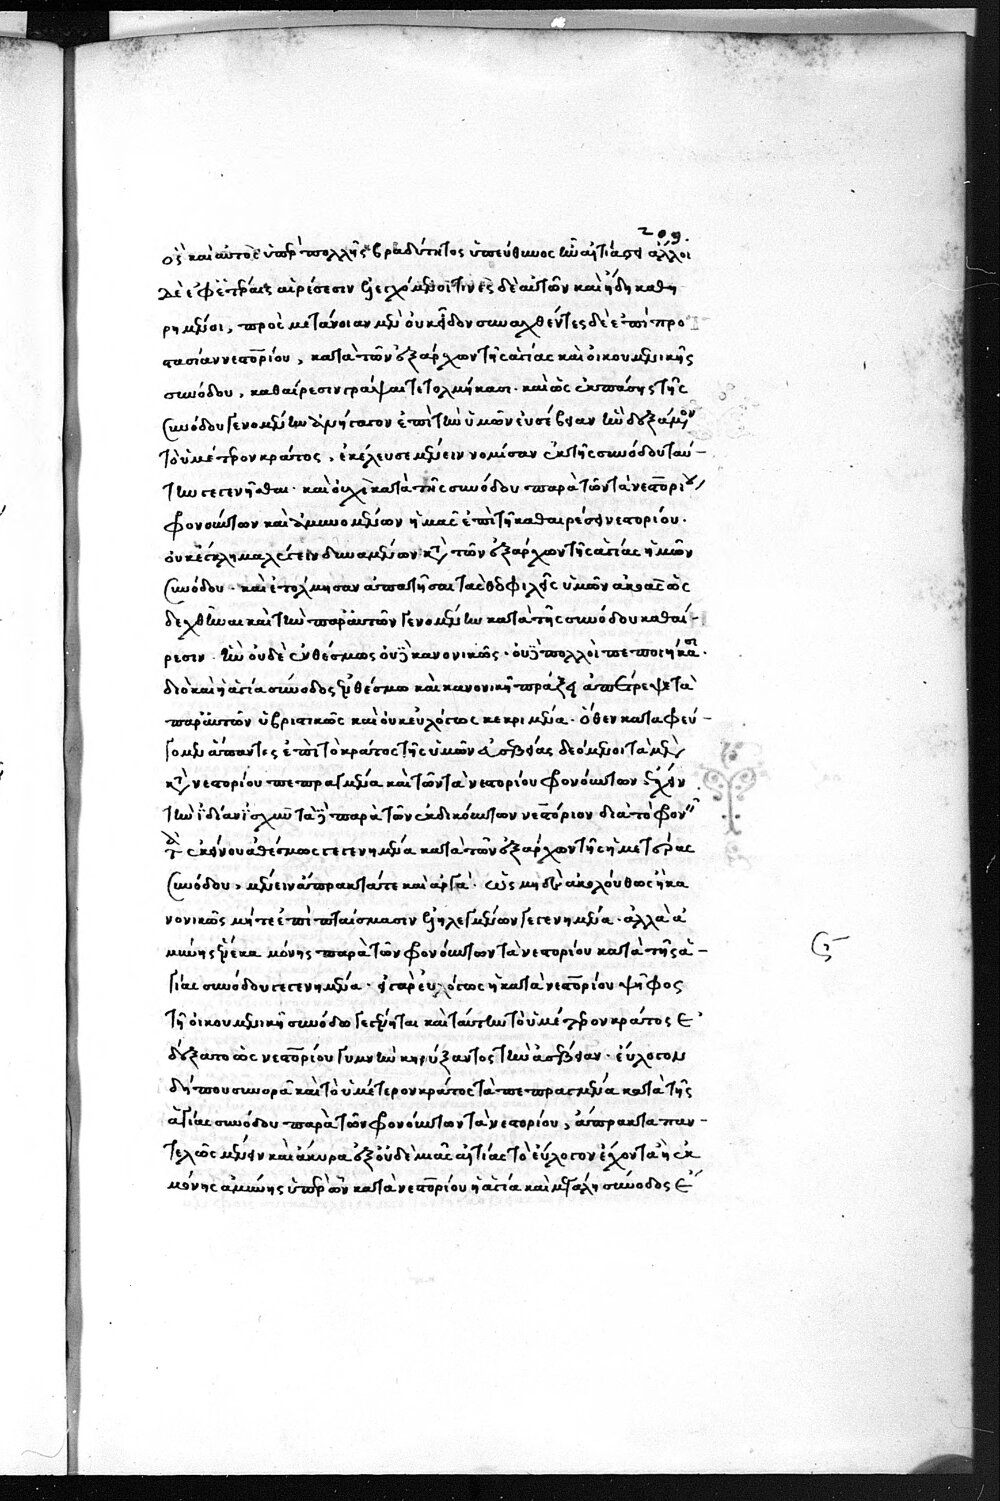 209.
ὃς καὶ αὐτὸς ὑπὲρ πολλῆς βραδύτητος ὑπεύθυνος ἦν αἰτίαις ἄλλοι
δὲ ἐφ' ἑτέραις αἱρέσεσιν ἐνεχόμενοι τινὲς δὲ αὐτῶν καὶ ἤδη καθη
ρημένοι, πρὸς μετάνοιαν μὲν οὐκ εἶδον συναχθέντες δὲ ἐπὶ προ
τασίαν νεστορίου, κατὰ τῶν ἐξάρχων τῆς ἁγίας καὶ οἰκουμενικῆς
συνόδου, καθαίρεσιν γράψαι τετολμήκασι. καὶ ὡς ἐκ πάσης τῆς
συνόδου γενομένην ἀνήγαγον ἐπὶ τὴν ὑμῶν εὐσέβειαν ἣν δεξάμενον
τὸ ὑμέτερον κράτος, ἐκέλευσε μένειν νομίσαν ἐκ τῆς συνόδου ταύ-
την γεγενῆσθαι. καὶ οὐχὶ κατὰ τῆς συνόδου παρὰ τῶν τὰ νεστορίου
φρονούντων καὶ ἀμυνομένων ἡμᾶς ἐπὶ τῇ καθαιρέσει νεστορίου.
οὐκ ἔγκλημα λέγειν δυναμένων κατὰ τῶν ἐξάρχων τῆς ἁγίας ἡμῶν
συνόδου. καὶ ἐτόλμησαν ἀπατῆσαι τὰς θεοφιλεῖς ὑμῶν ἀκοὰς ὡς
δεχθῆναι καὶ τὴν παρ' αὐτῶν γενομένην κατὰ τῆς συνόδου καθαί-
ρεσιν. ἣν οὐδὲ ἐνθέσμως οὔτε κανονικῶς. οὔτε πολλοὶ πεποιήκασι.
διὸ καὶ ἡ ἁγία σύνοδος ἐνθέσμῳ καὶ κανονικῇ πράξει ἀπέτρεψε τὰ
παρ' αὐτῶν ὑβριστικῶς καὶ οὐκ εὐλόγως κεκριμένα. ὅθεν καταφεύ-
γομεν ἅπαντες ἐπὶ τὸ κράτος τῆς ὑμῶν εὐσεβείας δεόμενοι τὰ μὲν
κατὰ νεστορίου πεπραγμένα καὶ τῶν τὰ νεστορίου φρονούντων ἔχειν
τὴν ἰδίαν ἰσχὺν τὰ δὲ παρὰ τῶν ἐκδικούντων νεστόριον διὰ τὸ φρονεῖν
τὰ ἐκείνου ἀθέσμως γεγενημένα κατὰ τῶν ἐξάρχων τῆς ἡμετέρας
συνόδου, μένειν ἄπρακτά τε καὶ ἀργά. ὡς μηδὲ ἀκολούθως ἢ κα
νονικῶς μήτε ἐπὶ πταίσμασιν ἐνηλεγμένων γεγενημένα. ἀλλὰ ἀ
μύνης ἕνεκα μόνης παρὰ τῶν φρονούντων τὰ νεστορίου κατὰ τῆς ἁ-
γίας συνόδου γεγενημένα. εἰ γὰρ εὐλόγως ἡ κατὰ νεστορίου ψῆφος
τῇ οἰκουμενικῇ συνόδῳ γεγένηται καὶ ταύτην τὸ ὑμέτερον κράτος ἐ
δέξατο ὡς νεστορίου γυμνῇ κηρύξαντος τὴν ἀσέβειαν. εὔλογον
δήπου συνορᾶ καὶ τὸ ὑμέτερον κράτος τὰ πεπραγμένα κατὰ τῆς
ἁγίας συνόδου παρὰ τῶν φρονούντων τὰ νεστορίου, ἄπρακτα παν-
τελῶς μένειν καὶ ἄκυρα ἐξ οὐδὲ μιᾶς αἰτίας τὸ εὔλογον ἔχοντα ἢ ἐκ
μόνης ἀμύνης ὑπὲρ ὧν κατὰ νεστορίου ἡ ἁγία καὶ μεγάλη σύνοδος ἐ